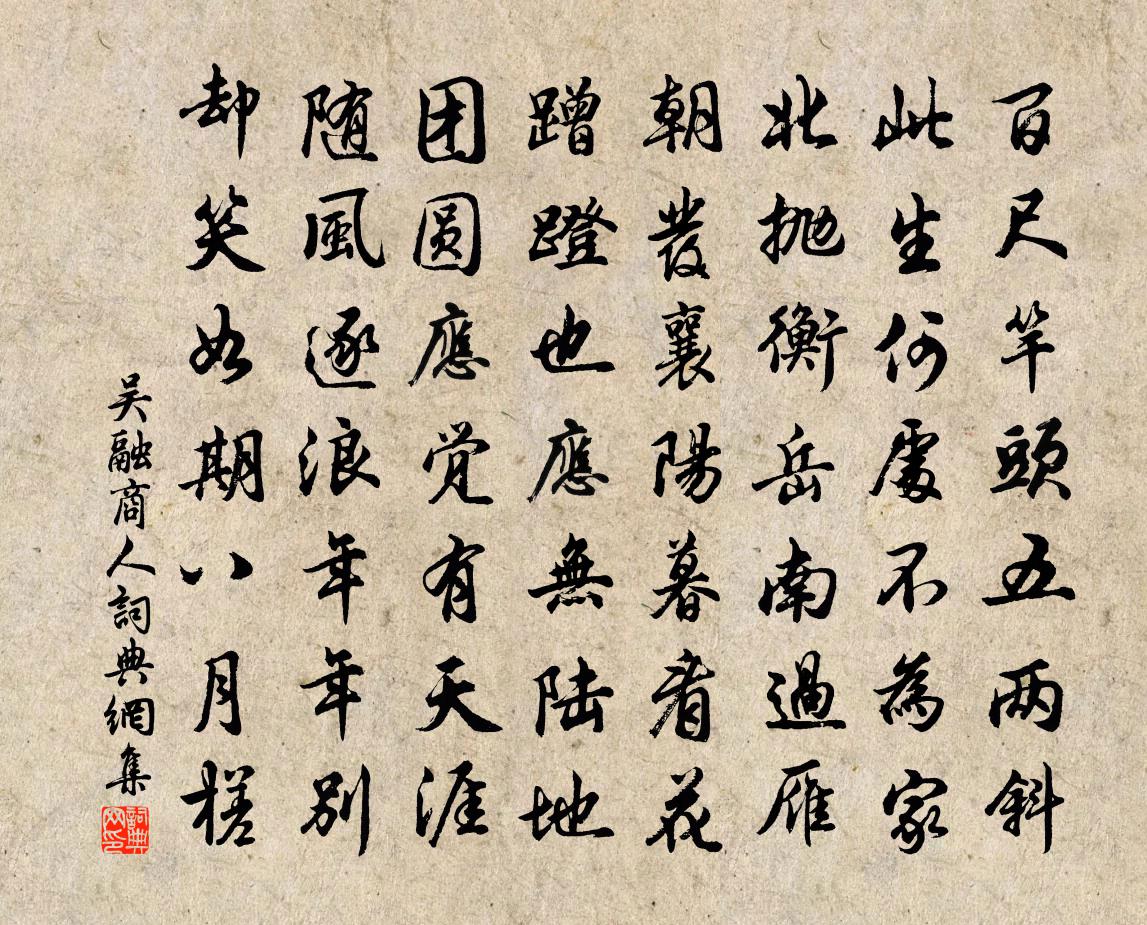 百尺竿頭五两斜
此生何處不為家
北抛衡岳南過雁
朝發襄陽暮看花
蹭蹬也應無陆地
团圆應觉有天涯
随風逐浪年年别
却笑如期八月槎
吴融商人詞典網集
詞典
网印